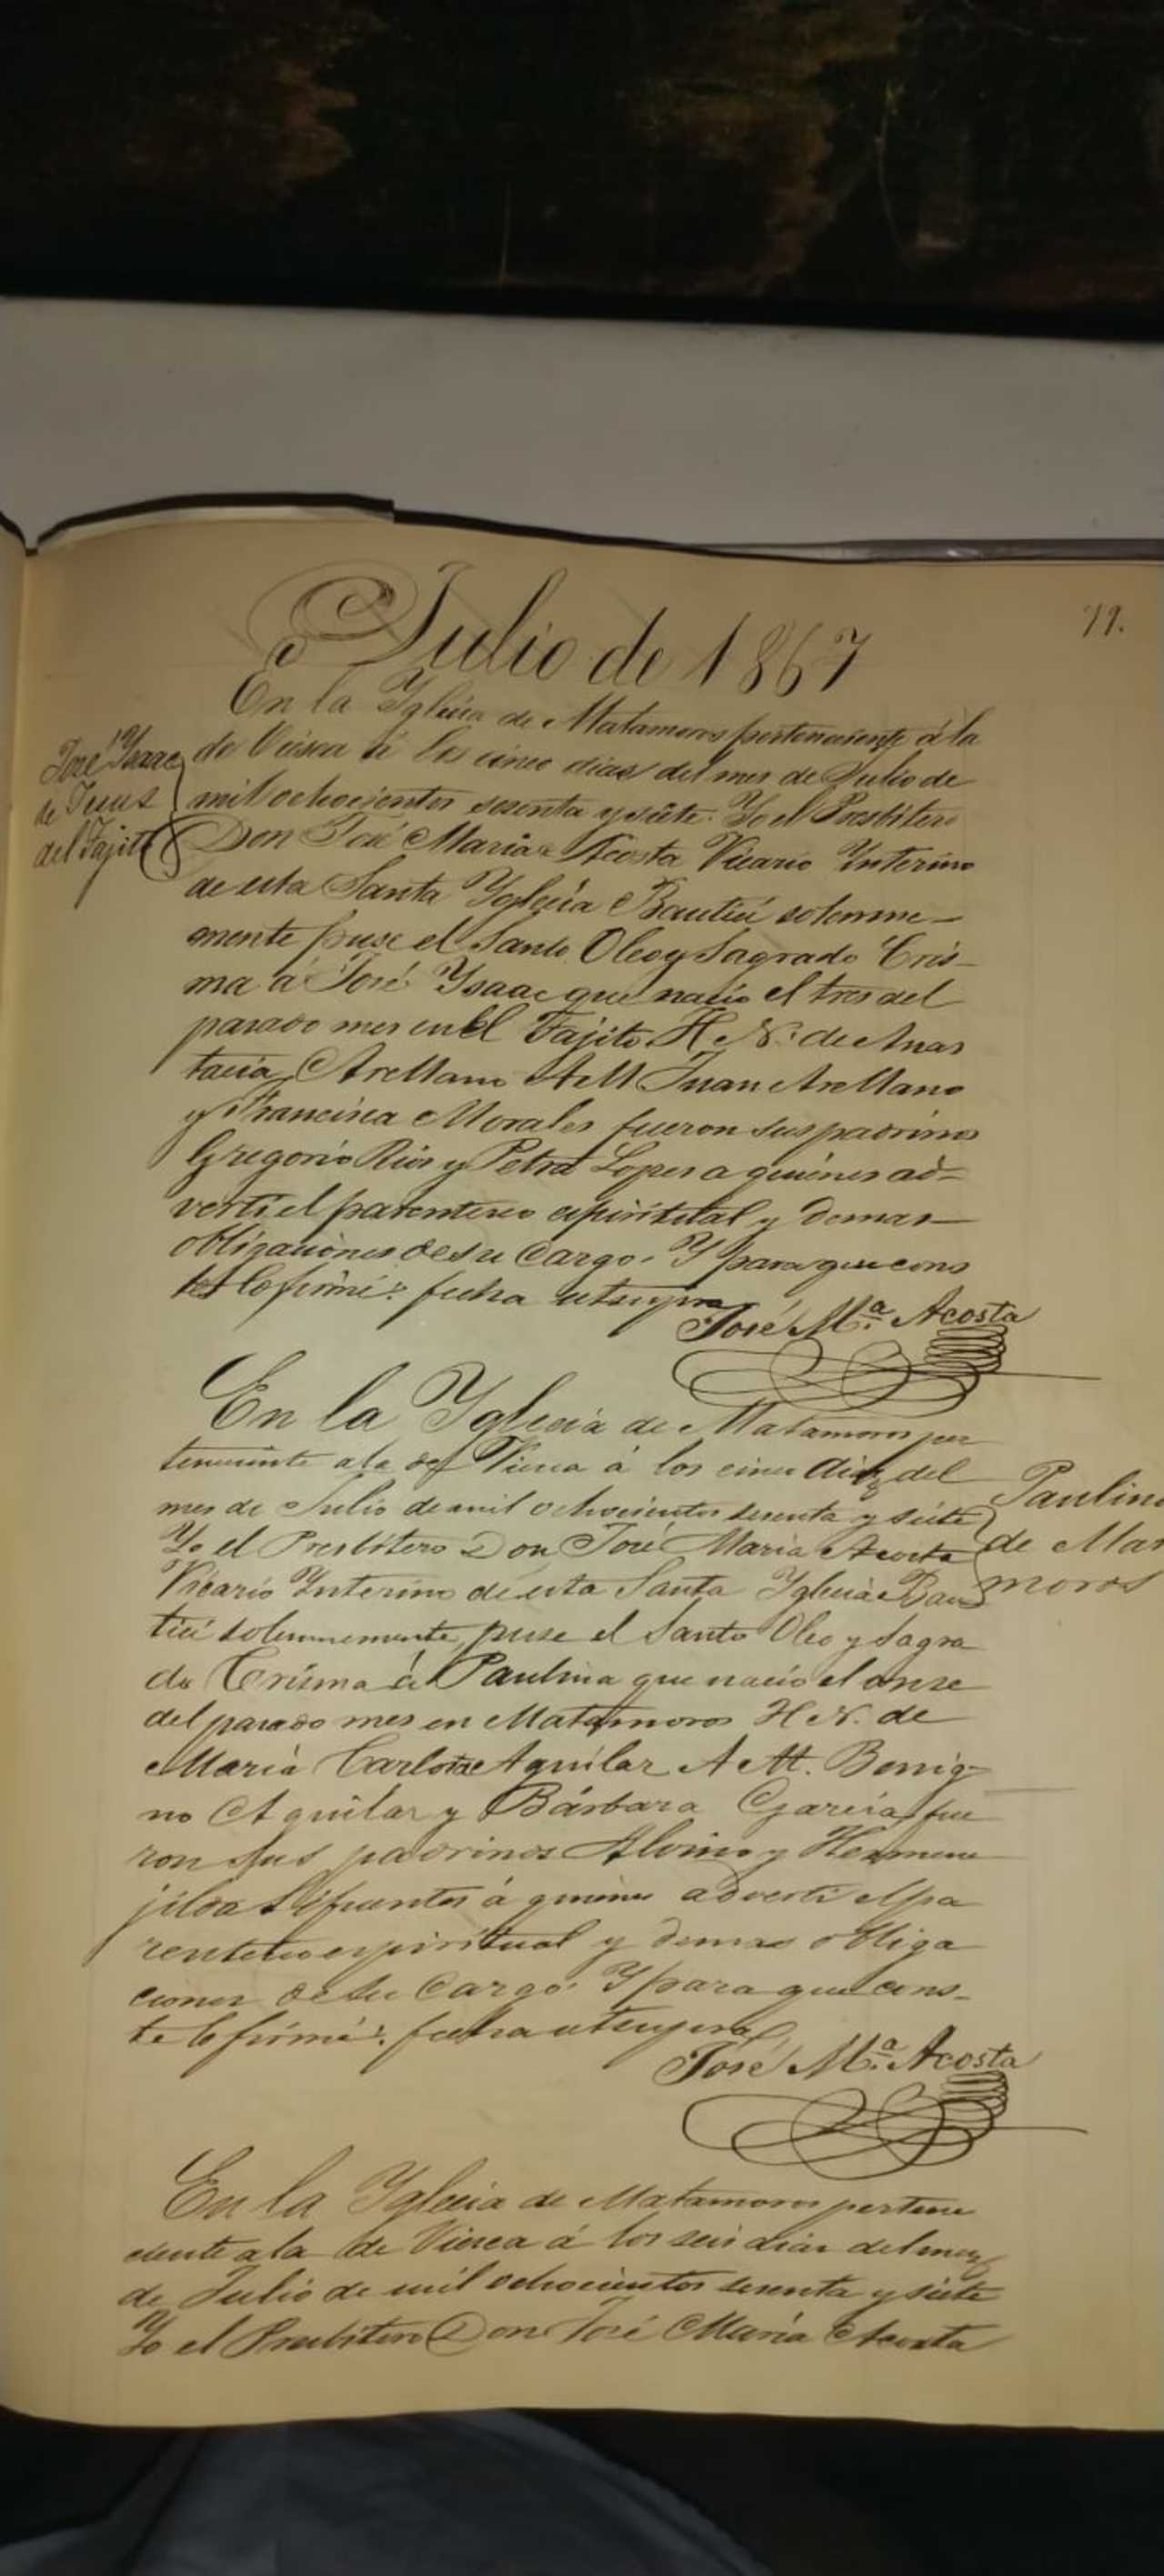 Julio de 1867
79.
En la Yglecia de Matamoros perteneciente á la
de Viesca á los cinco dias del mes de Julio de
mil ochocientos sesenta y siete. Yo el Presbitero
Don José Maria Acosta Vicario Ynterino
de esta Santa Yglecia Bauticé solemne-
mente puse el Santo Oleo y Sagrado Cris-
ma á José Ysaac que nacio el tres del
pasado mes en El Tajito H. N. de Anas
tacia Arellano A M Juan Arellano
y Francisca Morales fueron sus padrinos
Gregorio Rios y Petra Lopes a quienes ad-
verti el parentesco espiritual y demas
obligaciones de su Cargo. Y para que cons
te lo firmé: fecha utsupra
José Ysaac
de Jesus
del Tajito
José M.ª Acosta
En la Yglecia de Matamoros per
teneciente a la de Viesca á los cinco dias del
mes de Julio de mil ochocientos sesenta y siete
Yo el Presbitero Don José Maria Acosta
Vicario Ynterino de esta Santa Yglecia Bau
ticé solemnemente, puse el Santo Oleo y Sagra
do Crisma á Paulina que nacio el onse
del pasado mes en Matamoros H. N. de
Maria Carlota Aguilar A M. Benig-
no Aguilar y Bárbara Garcia, fue
ron sus padrinos Alvino y Hermene
jilda Sifuentes á quienes adverti el pa
rentesco espiritual y demas obliga
ciones de su Cargo. Y para que cons-
te lo firmé: fecha utsupra
Paulin
de Mat
moros
José M.ª Acosta
En la Yglecia de Matamoros pertene
ciente a la de Viesca á los seis dias del mes
de Julio de mil ochocientos sesenta y siete
Yo el Presbitero Don José Maria Acosta